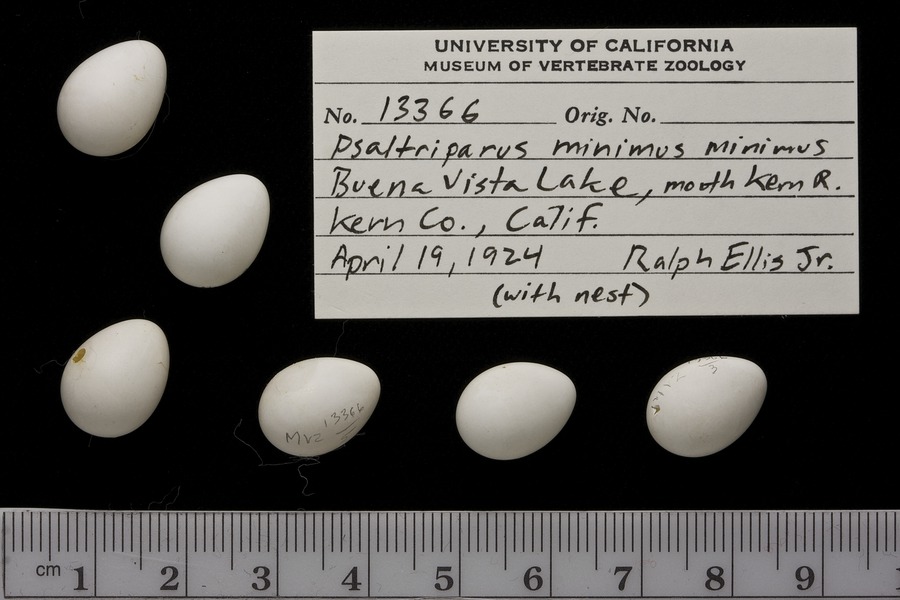 UNIVERSITY OF CALIFORNIA
MUSEUM OF VERTEBRATE ZOOLOGY
No. 13366 Orig. No.
Psaltriparus minimus minimus
Buena Vista Lake, mouth Kern R.
Kern Co., Calif.
April 19, 1924 Ralph Ellis Jr.
(with nest)
MVZ 13366
cm 1 2 3 4 5 6 7 8 9